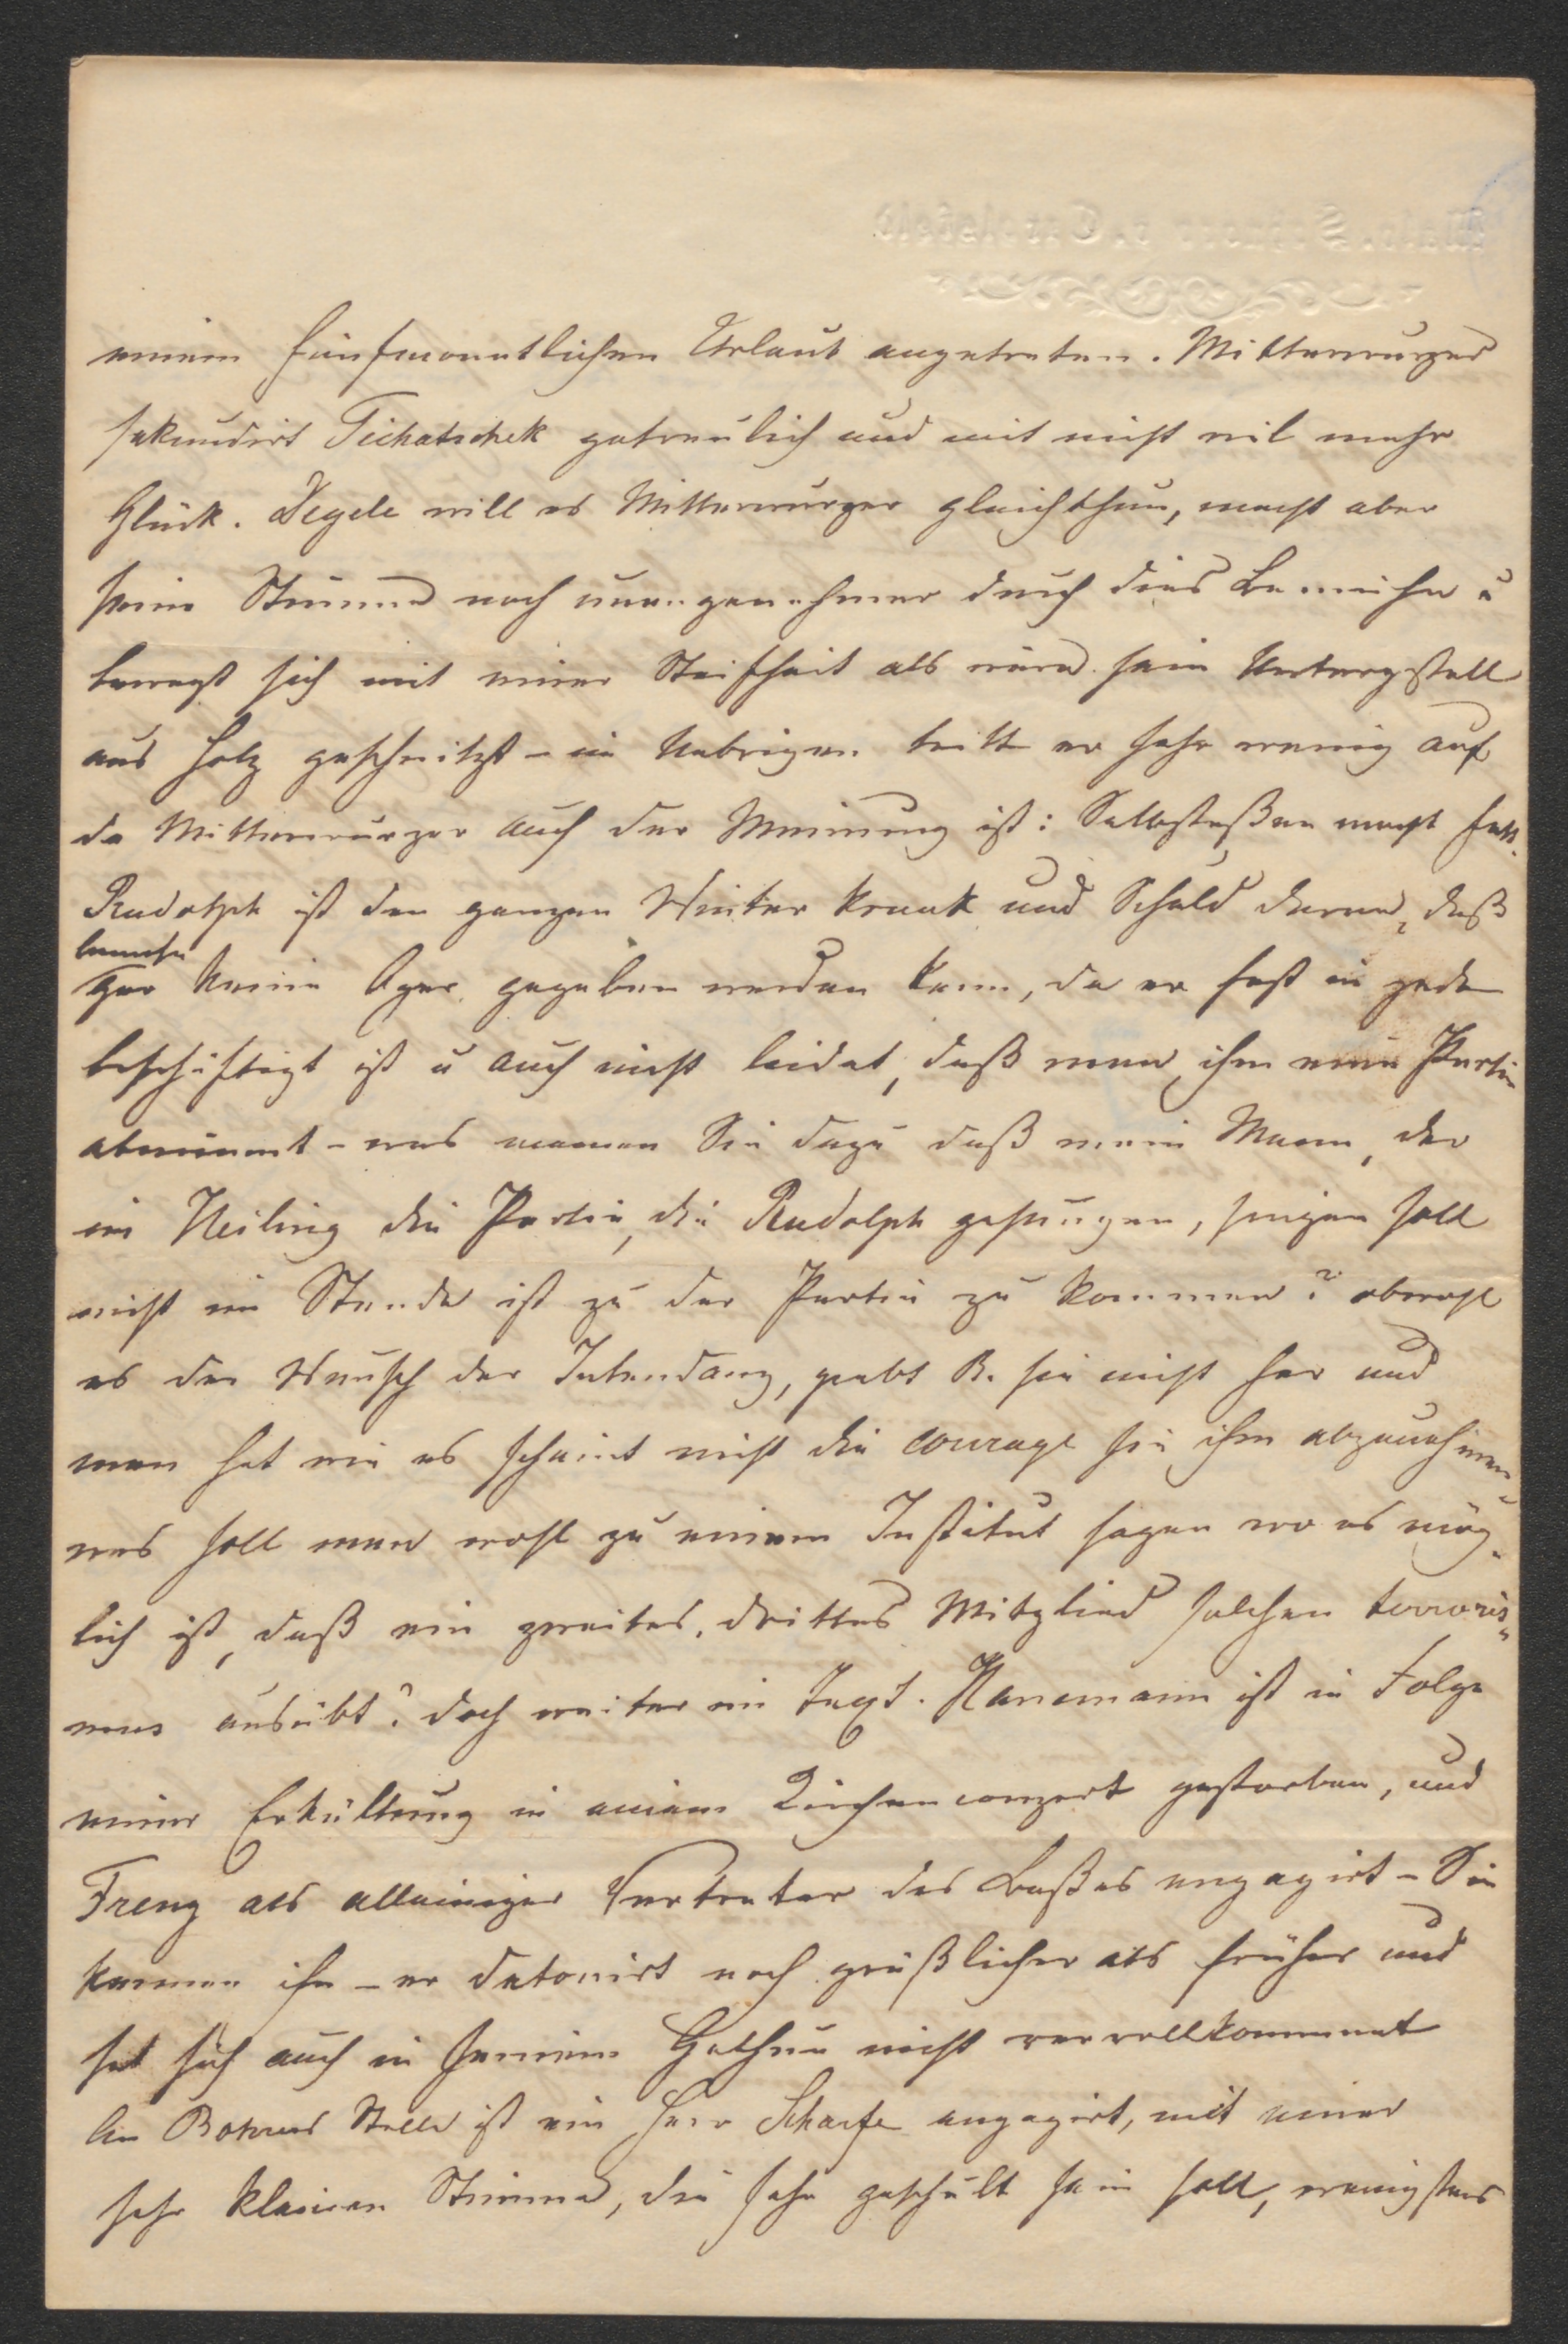 einen fünfmonatlichen Urlaub angetreten. Mitterwurzer
sekundirt Tichatschek getreulich und mit nicht vil mehr
Glück. Degele will es Mitterwurzer gleichthun, macht aber
seine Stimme noch unangenehmer durch dies Bemühen u
bewegt sich mit einer Steifheit als wäre sein Untergestell
aus Holz geschnitzt – im Uebrigen tritt er sehr wenig auf
da Mitterwurzer auch der Meinung ist: Selbsteßen macht fett.
Rudolph ist den ganzen Winter krank und Schuld daran, daß
beinahe
gar keine Oper gegeben werden kann, da er fast in jeder
beschäftigt ist u auch nicht leidet, daß man ihm eine Partie
abnimmt – was meinen Sie dazu daß mein Mann, der
im Heiling die Partie, die Rudolph gesungen, singen soll
nicht im Stande ist zu der Partie zu kommen? obwohl
es der Wunsch der Intendanz, giebt R. sie nicht her und
man hat wie es scheint nicht die courage sie ihm abzunehmen
was soll man wohl zu einem Institut sagen wo es mög-
lich ist, daß ein zweites, drittes Mitglied solchen terroris-
mus ausübt? doch weiter im Text. Hanemann ist in Folge
einer Erkältung in einem Kirchenconzert gestorben, und
Freny als alleiniger Vertreter des Baßes engagirt – Sie
kennen ihn – er detonirt noch gräßlicher als früher und
hat sich auch in seinem Gethue nicht vervollkommnet
An Bohrers Stelle ist ein Herr Scharfe engagirt, mit einer
sehr kleinen Stimme, die sehr geschult sein soll, wenigstens